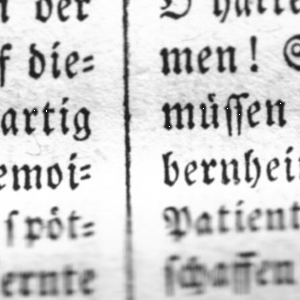 der
die⸗
artig
emoi⸗
spöt⸗
ernte
hatte
men!
müssen
bernhei
Patient
schaffen